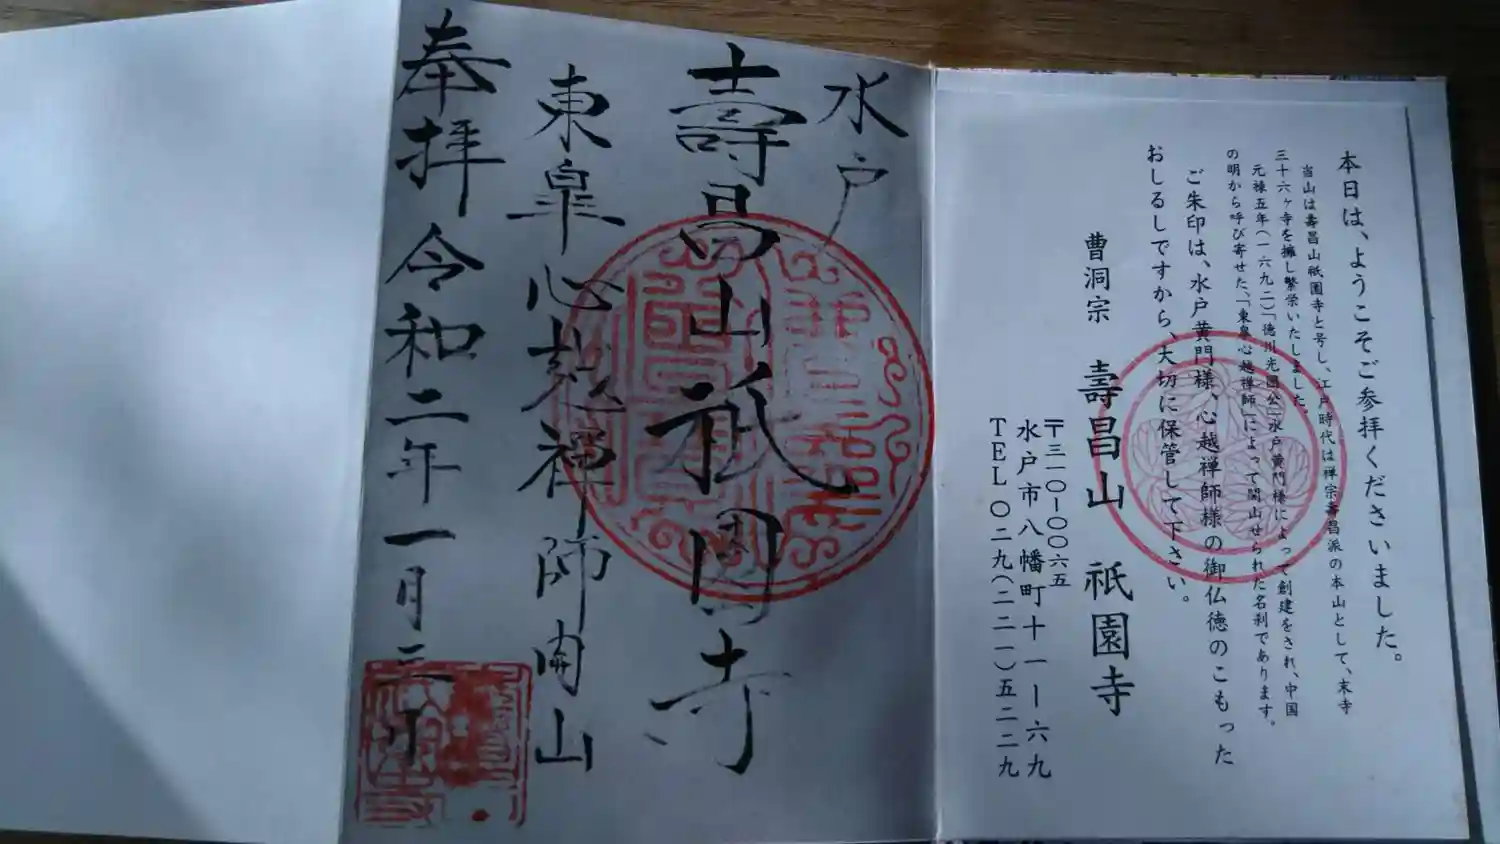 本日は、ようこそご参拝くださいました。
当山は壽昌山祇園寺と号し、江戸時代は禅宗壽昌派の本山として、末寺
三十六ヶ寺を擁し繁栄いたしました。
元禄五年(一六九二)「徳川光圀公」水戸黄門様によって創建をされ、中国
の明から呼び寄せた、「東皐心越禅師」によって開山せられた名刹であります。
ご朱印は、水戸黄門様、心越禅師様の御仏徳のこもった
おしるしですから、大切に保管して下さい。
曹洞宗 壽昌山 祇園寺
〒三一〇-〇〇六五
水戸市八幡町十一ー六九
TEL〇二九(二二一)五二二九
水戸
壽昌山祇園寺
東皐心越禅師開山
奉拝令和二年一月三日